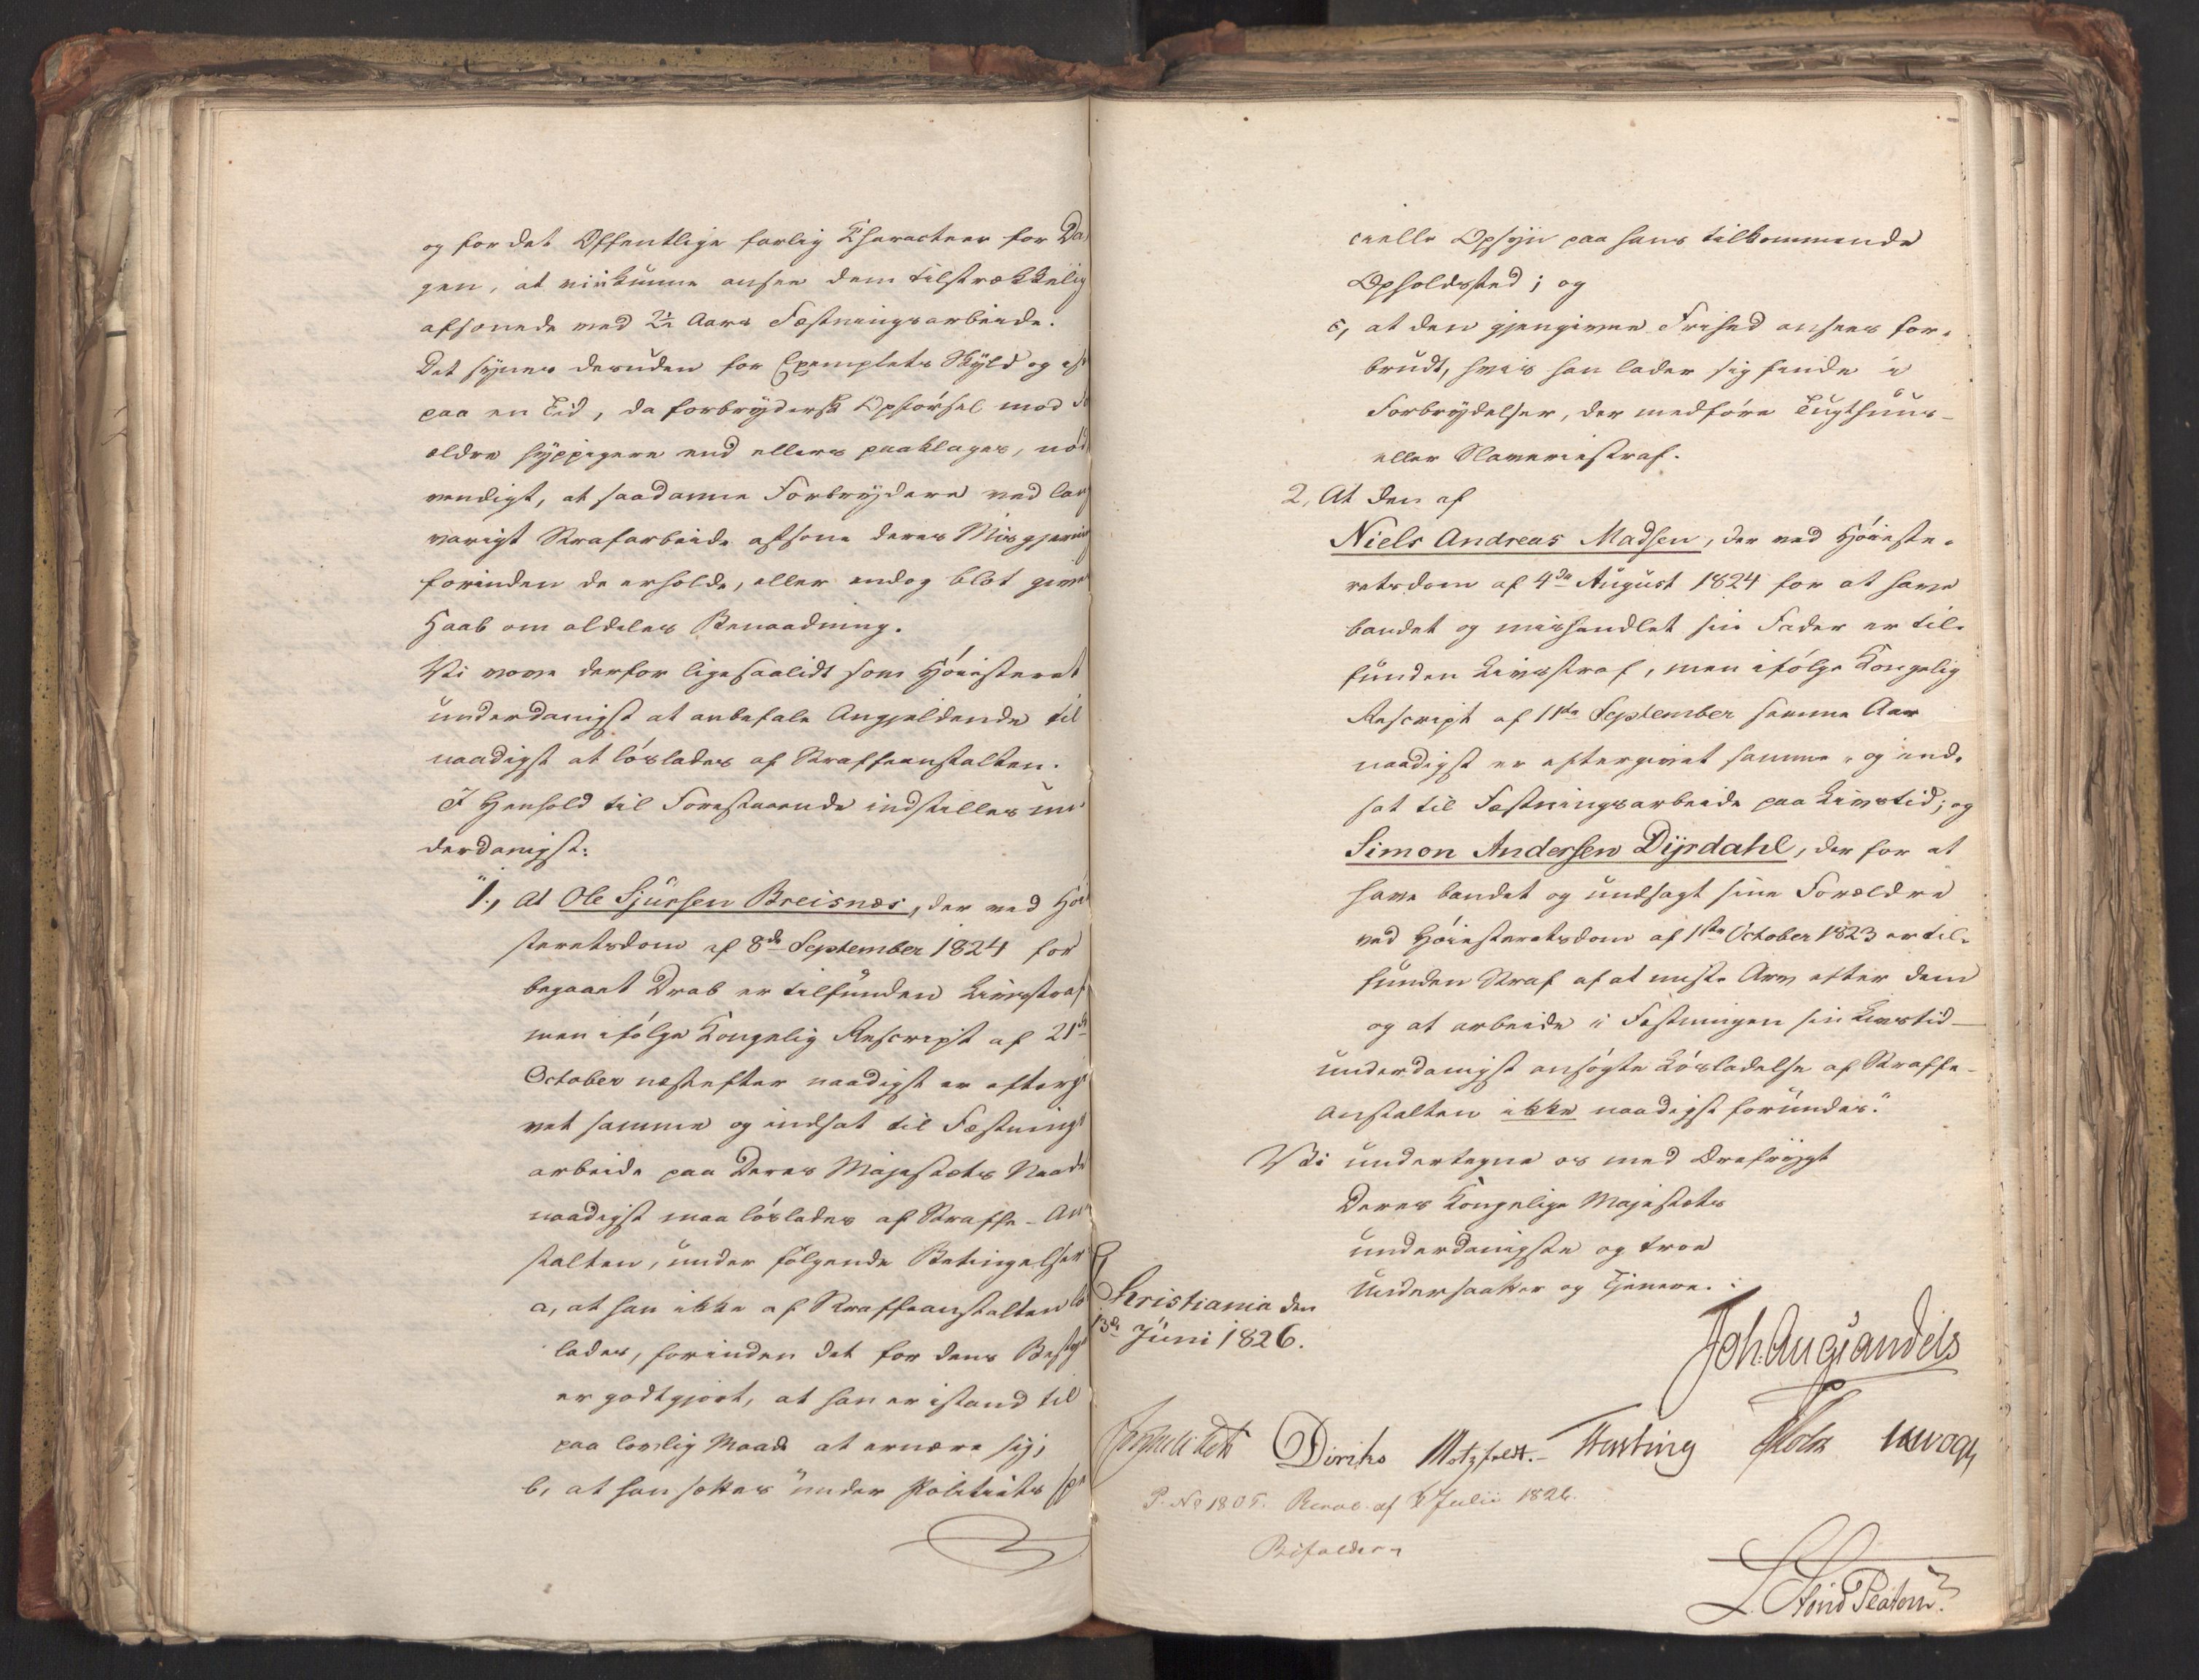 og for det Offentlige farlig Characteer for Da
gen, at vi kunne ansee dem tilstrækkelig
afsonede med 2½ Aars Fæstningsarbeide.
Det synes desuden for Exemplets Skyld og
paa en Tid, da forbrydersk Opførsel mod
ældre hyppigere end ellers paaklages, nød
vendigt, at saadanne Forbrydere ved lang
varigt Strafarbeide afsone deres Misgjerning
forinden de erholde, eller endog blot give
Haab om aldeles Benaadning.
Vi vove derfor ligesaalidt som Høiesteret
underdanigst at anbefale Angjeldende til
naadigst at løslades af Straffeanstalten.
I Henhold til Forestaaende indstilles un
derdanigst:
"1., At Ole Sjursen Breisnæs, der ved Høi
steretsdom af 8de September 1824 for
begaaet Drab er tilfunden Livsstraf
men ifølge Kongelig Rescript af 21de
October næstefter naadigst er eftergi
vet samme og indsat til Fæstnings
arbeide paa Deres Majestæts Naade
naadigst maa løslades af Straffe-An
stalten, under følgende Betingelser
a, at han ikke af Straffeanstalten lø
lades, forinden det for dens Besty
er godtgjort, at han er istand til
paa lovlig Maade at ernære sig;
b, at han sættes under Politiets spe
cielle Opsyn paa hans tilkommende
Opholdssted; og
c, at den gjengivne Frihed ansees for-
brudt, hvis han lader sig finde i
Forbrydelser, der medføre Tugthuus-
eller Slaveriestraf.
2, At den af
Niels Andreas Madsen, der ved Høieste-
retsdom af 4de August 1824 for at have
bandet og mishandlet sin Fader er til-
funden Livsstraf, men ifølge Kongelig
Rescript af 11te September samme Aar
naadigst er eftergivet samme, og ind-
sat til Fæstningsarbeide paa Livstid; og
Simon Andersen Dijrdahl, der for at
have bandet og undsagt sine Forældre
ved Høiesteretsdom af 1ste October 1823 er til-
funden Straf af at miste Arv efter dem
og at arbeide i Fæstningen sin Livstid-
underdanigst ansøgte Løsladelse af Straffe-
Anstalten ikke naadigst forundes."
Vi undertegne os med Ærefrygt
Deres Kongelige Majestæts
underdanigste og troe
Undersaatter og Tjenere.
Christiania den
13de Juni 1826.
Joh. Aug. Sandels
Diriks Motzfeldt. Fasting
P. No 1805. Resol. af Julii 1826.
Bifaldes